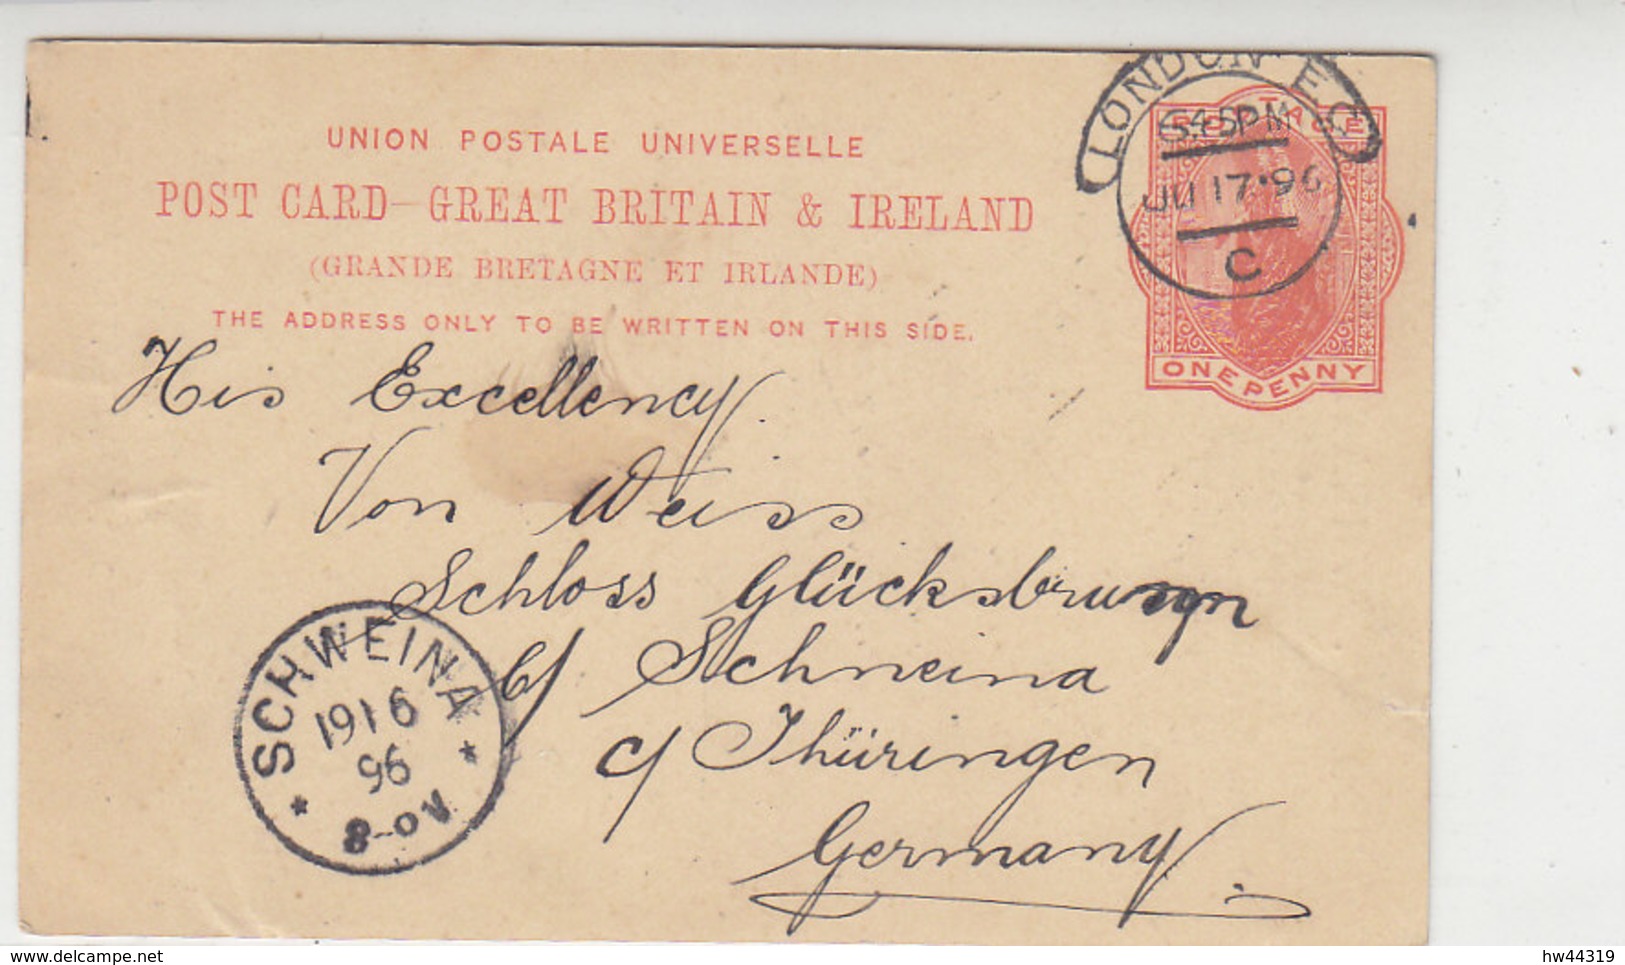 UNION POSTALE UNIVERSELLE
POST CARD—GREAT BRITAIN & IRELAND
(GRANDE BRETAGNE ET IRLANDE)
THE ADDRESS ONLY TO BE WRITTEN ON THIS SIDE.
LONDON E.C.
5 45 PM
JU 17·96
C
POSTAGE
ONE PENNY
His Excellency
Von Weiss
Schloss Glücksbrunn
b/ Schweina
c/ Thüringen
Germany
SCHWEINA
19 1 6
96
8-9 V
hw44319